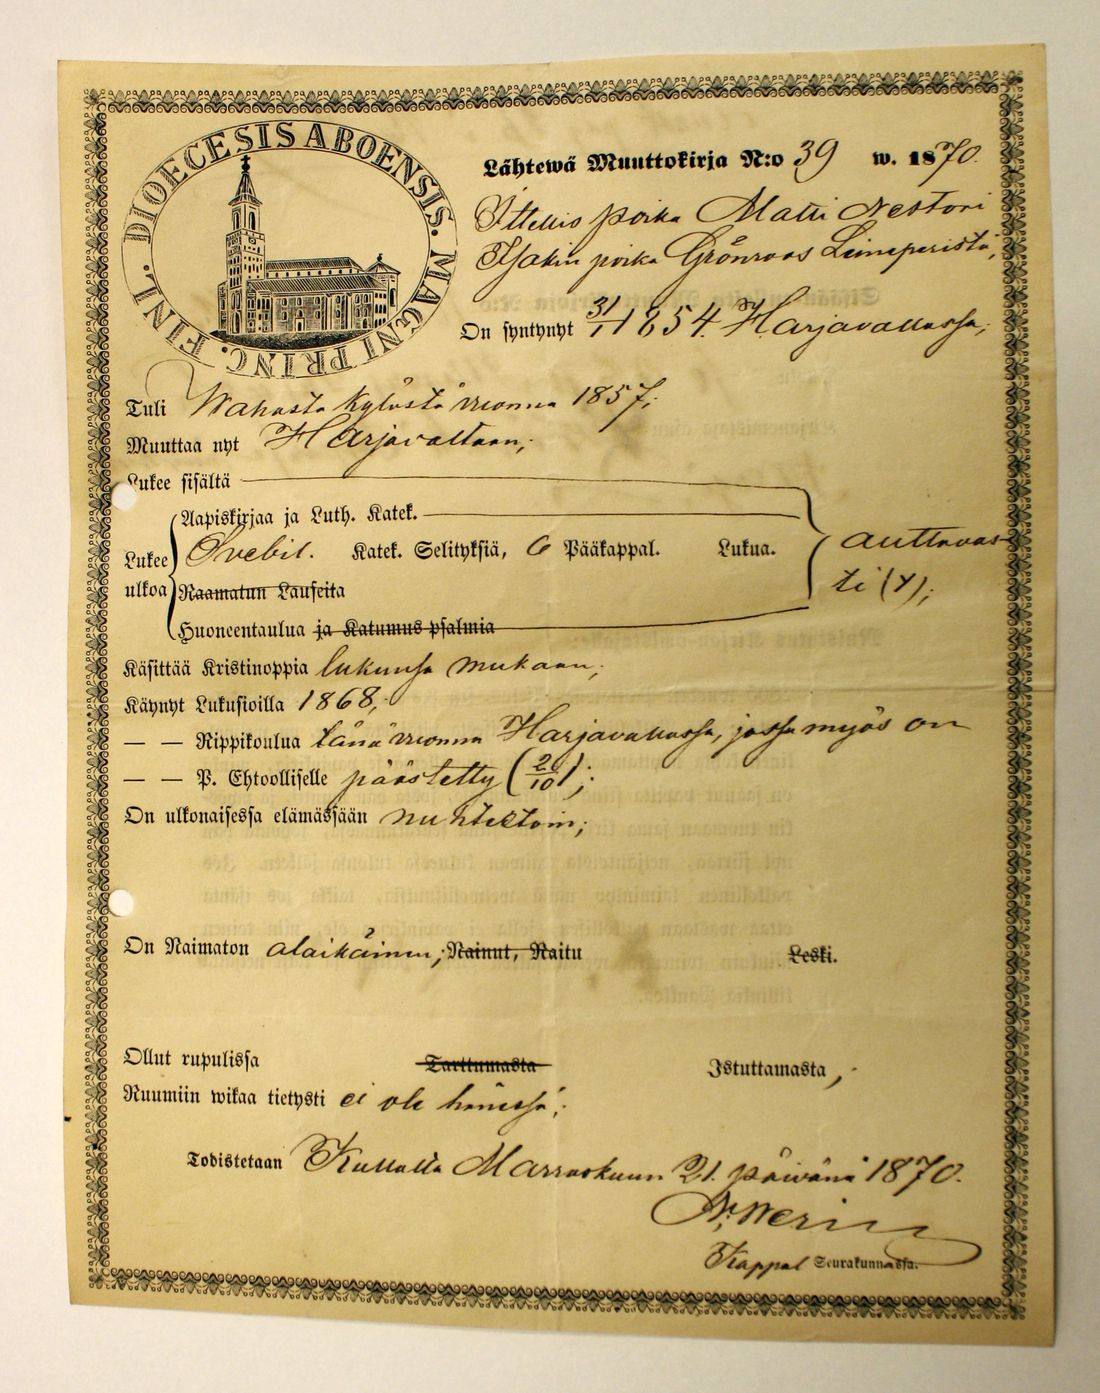 DIOECESIS ABOENSIS. MAGNI PRINC. FINL.
Lähtewä Muuttokirja N:o 39 w. 1870.
Ittellis poika Matti Nestori
Isakin poika Grönroos Leineperistä,
On syntynyt 31/1 1854. Harjavallassa;
Tuli Wahasta kylästä vuonna 1857;
Muuttaa nyt Harjavaltaan;
Lukee sisältä
Aapiskirjaa ja Luth. Katek.
Lukee Svebil. Katek. Selityksiä, 6 Pääkappal. Lukua. auttavas-
ulkoa Raamatun Lauseita ti (y);
Huoneentaulua ja Katumus-psalmia
Käsittää Kristinoppia lukunsa mukaan;
Käynyt Lukusioilla 1868;
— — Rippikoulua tänä vuonna Harjavallassa, jossa myös on
— — P. Ehtoolliselle päästetty (2/10);
On ulkonaisessa elämässään nuhteetoin;
On Naimaton alaikäinen; Nainut, Naitu Leski.
Ollut rupulissa Tarttumasta Istuttamasta;
Ruumiin wikaa tietysti ei ole hänessä;
Todistetaan Kullalla Marraskuun 21. päivänä 1870.
Kappal Seurakunnassa.